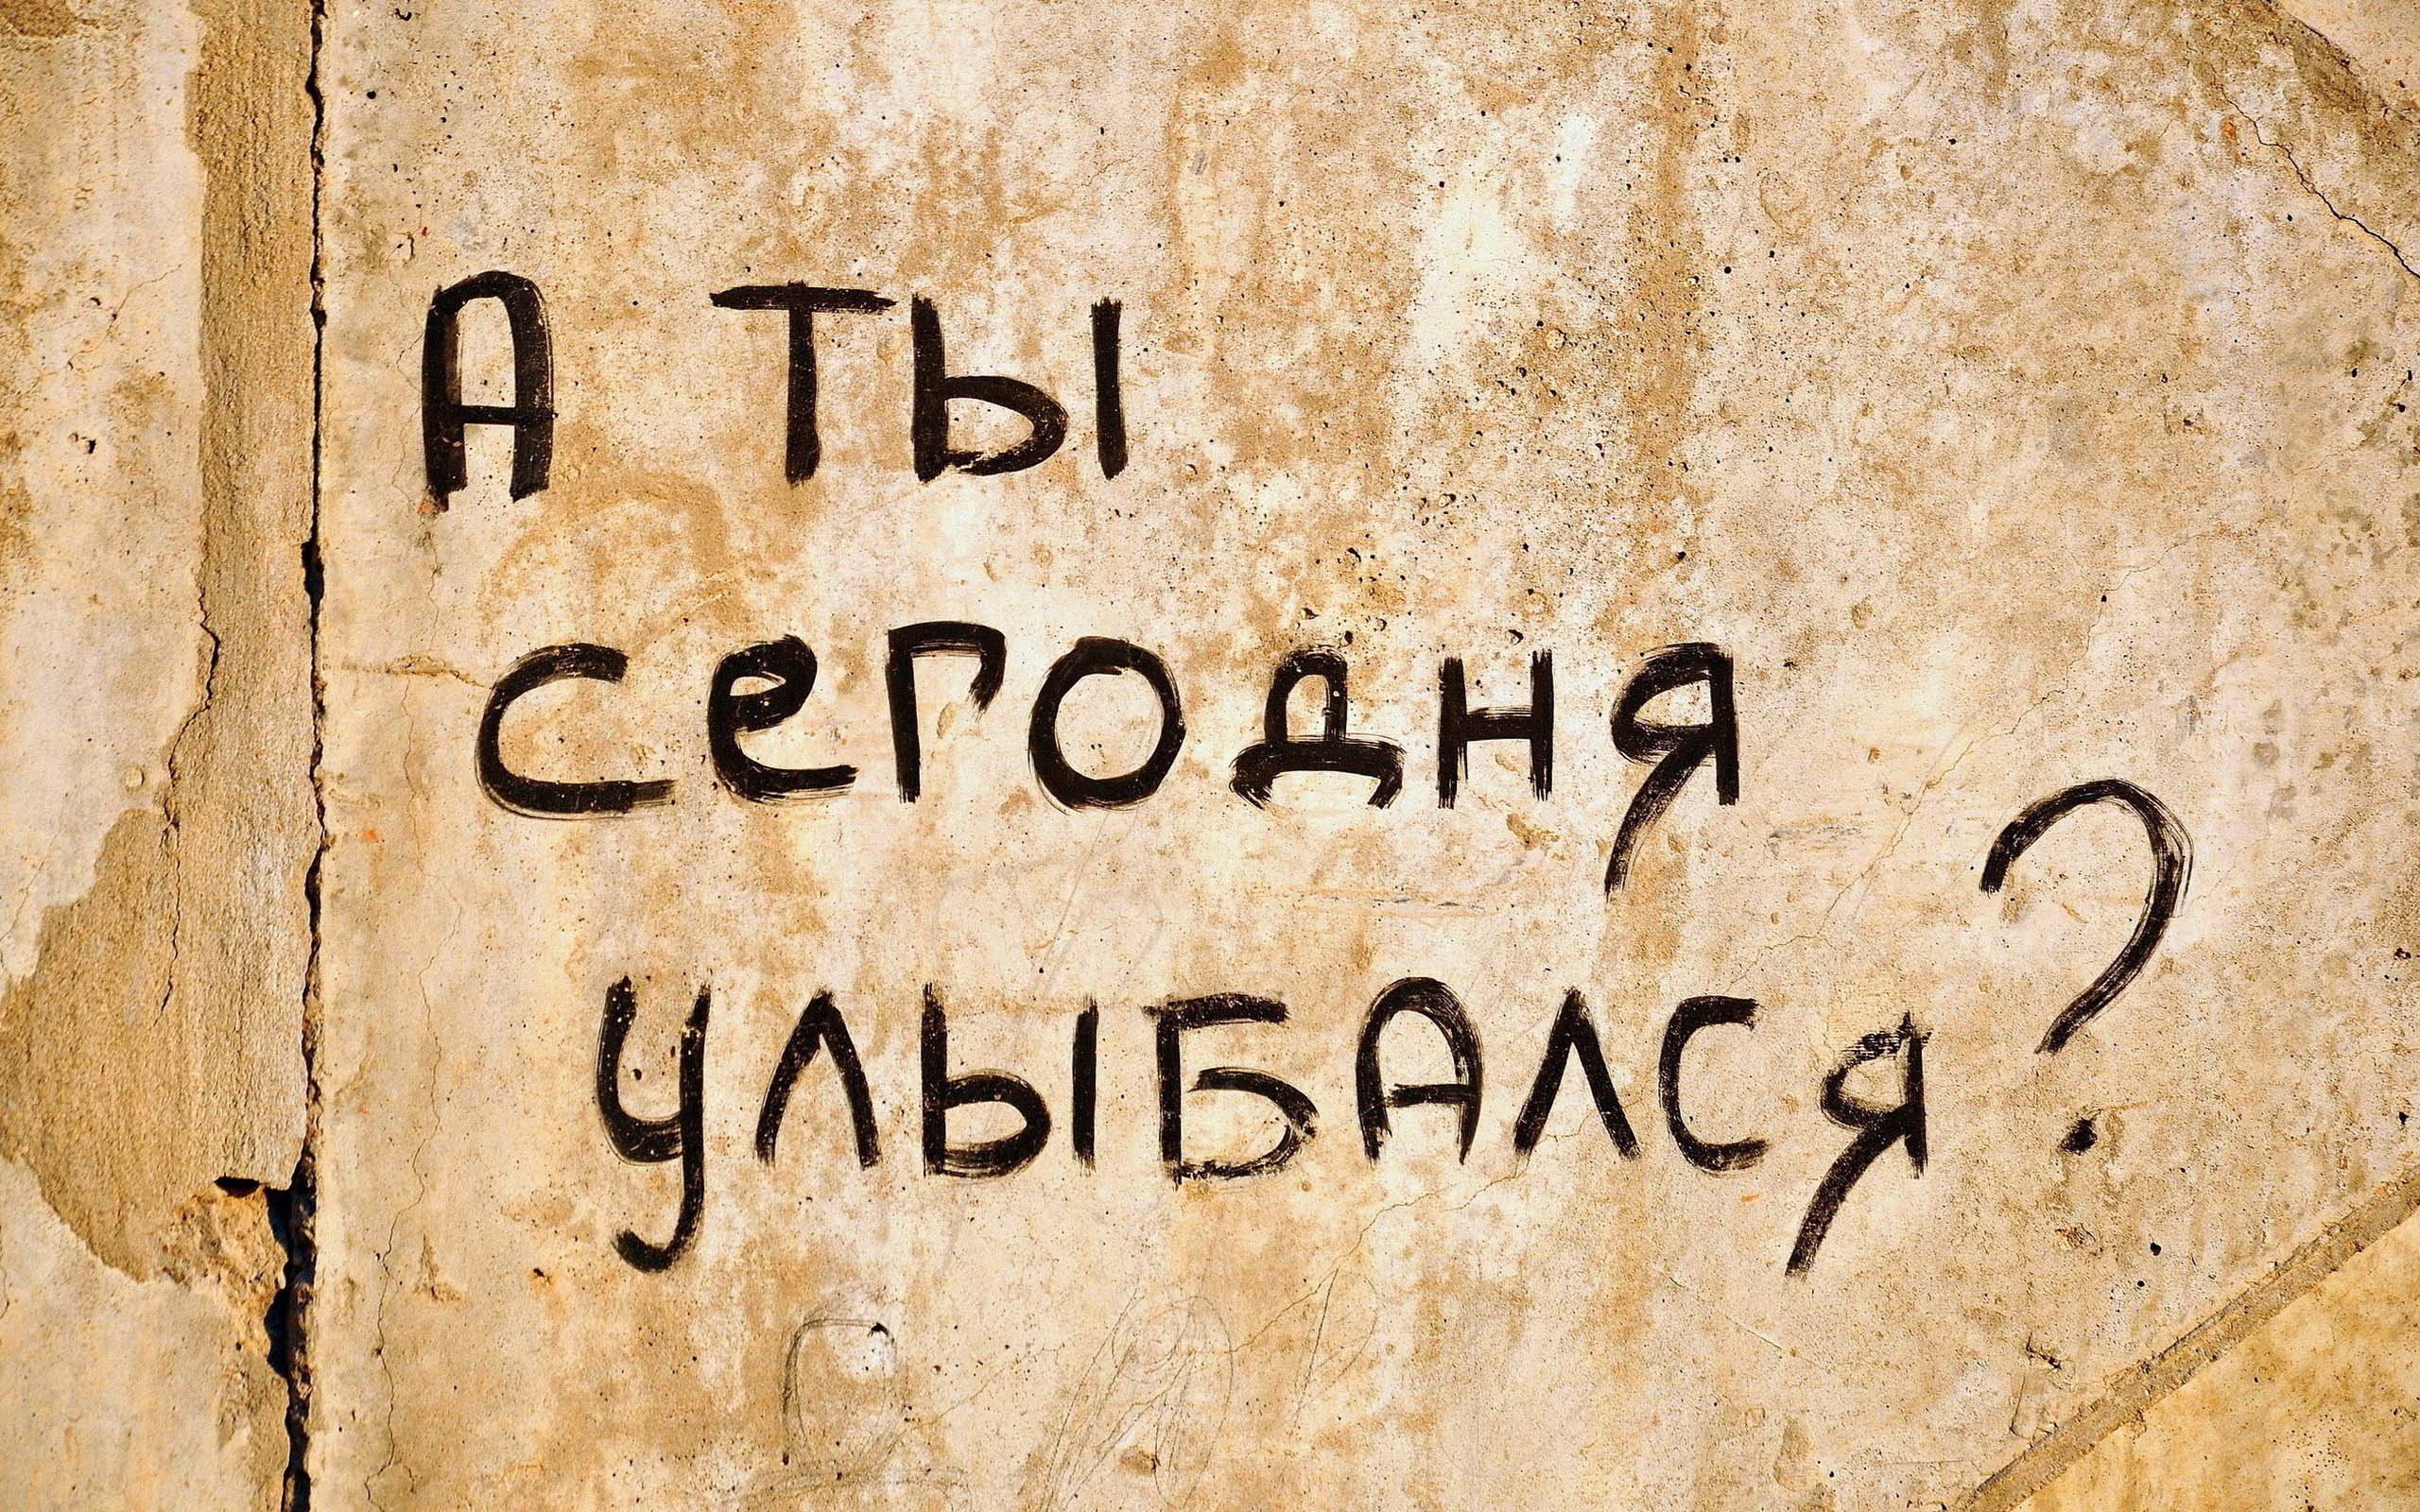 А ты
сегодня
улыБАлся?